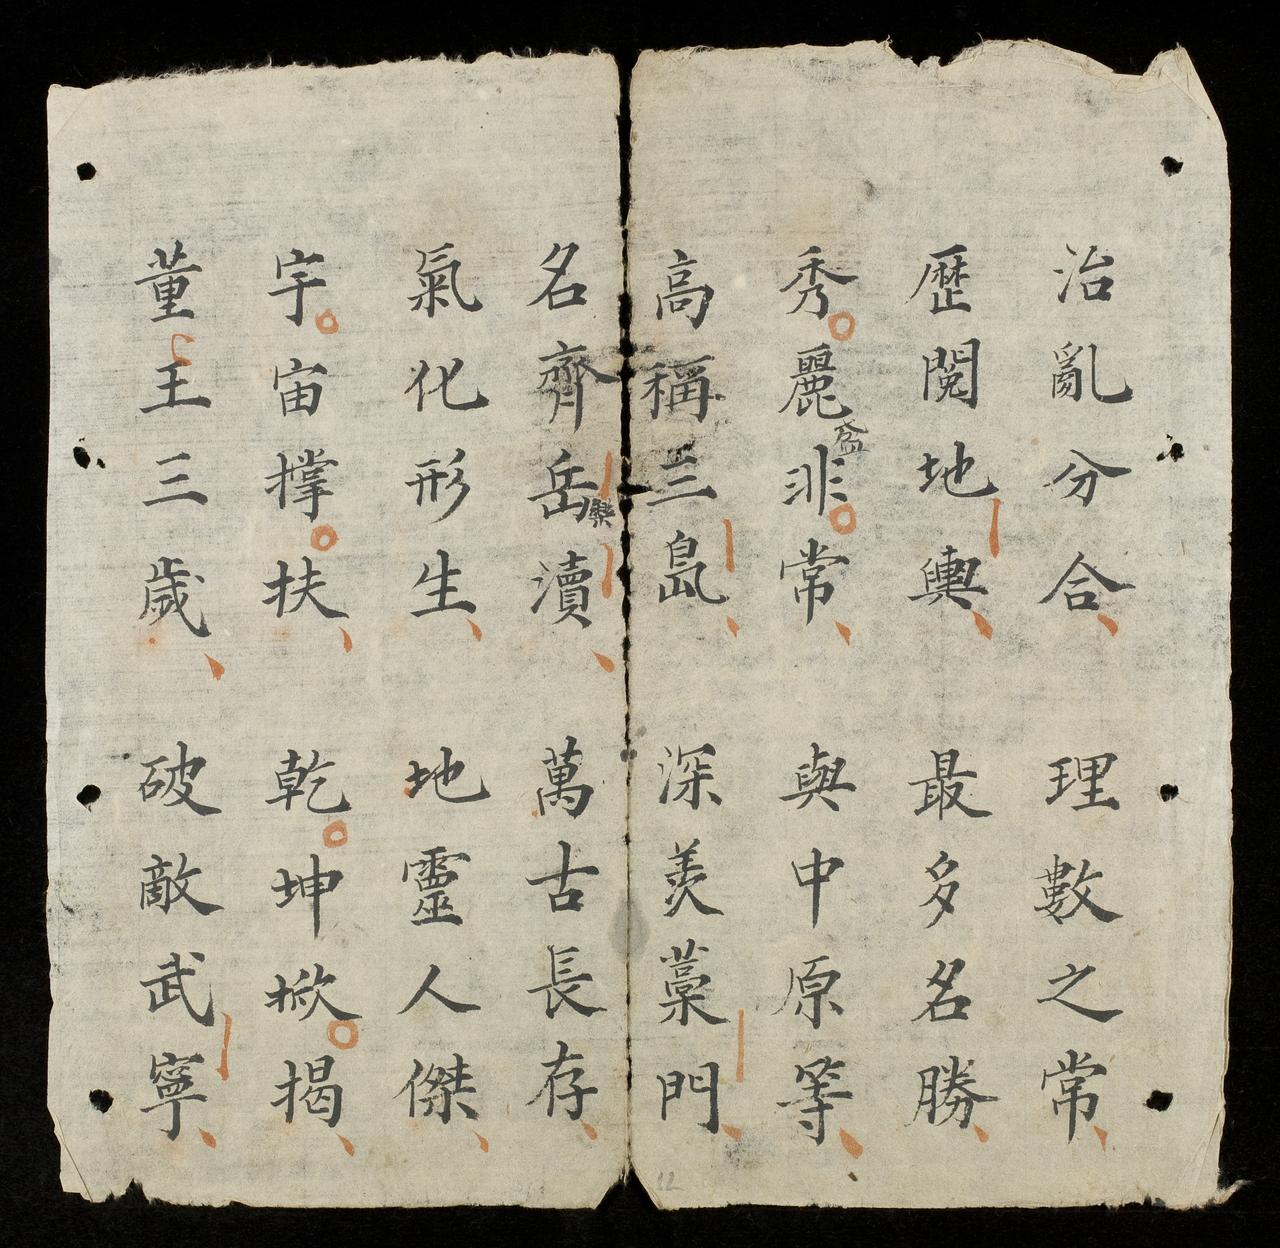 治亂分合 理數之常
歷閱地輿 最多名勝
秀麗非常 與中原等
盛
高稱三島 深羨藁門
名齊岳瀆 萬古長存
氣化形生 地靈人傑
宇宙撑扶 乾坤掀揭
董王三歲 破敵武寧
12